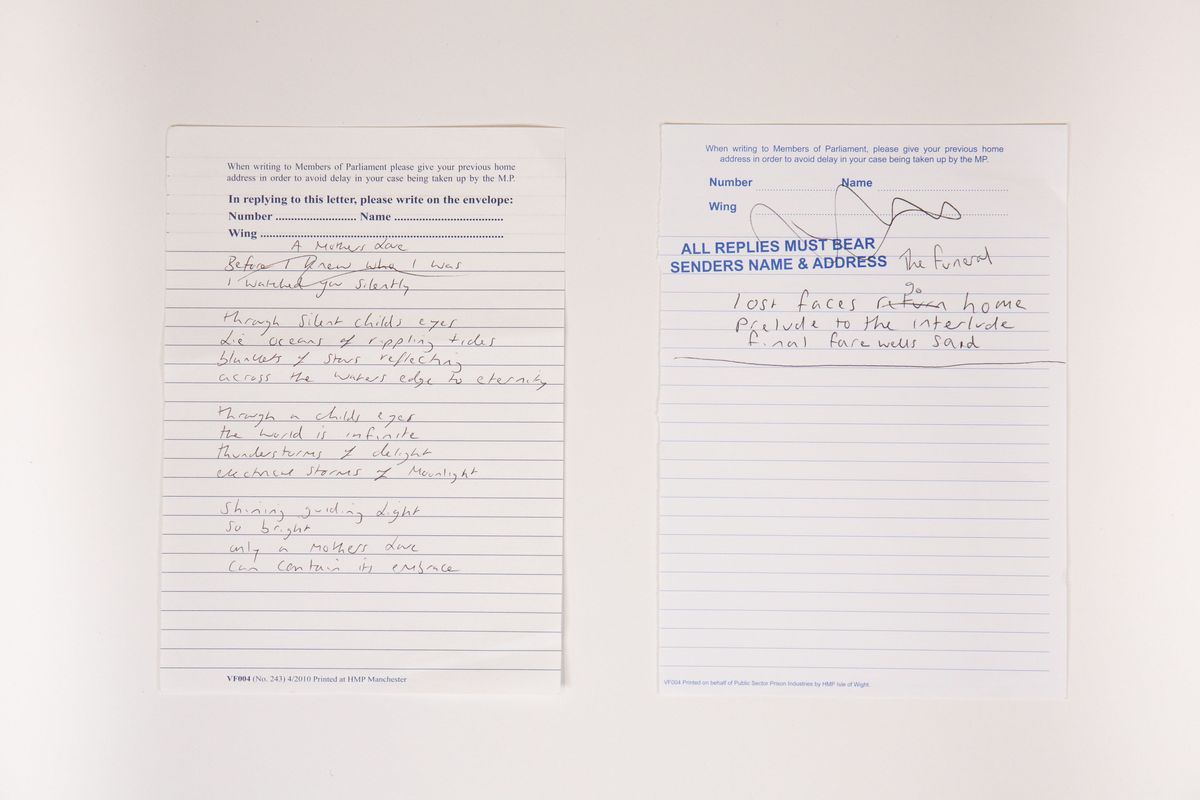 When writing to Members of Parliament please give your previous home
address in order to avoid delay in your case being taken up by the M.P.
In replying to this letter, please write on the envelope:
Number ........................ Name ................................
Wing ........................................................................
A Mothers Love
Before I Knew who I was
I watched you silently
through silent childs eyes
Lie oceans of rippling tides
blankets of stars reflecting
across the waters edge to eternity
through a childs eyes
the world is infinite
thunderstorms of delight
electrical storms of Moonlight
Shining guiding Light
So bright
only a Mothers Love
Can contain its embrace
VF004 (No. 243) 4/2010 Printed at HMP Manchester
When writing to Members of Parliament, please give your previous home
address in order to avoid delay in your case being taken up by the MP.
Number ........................ Name ................................
Wing ........................................................................
ALL REPLIES MUST BEAR
SENDERS NAME & ADDRESS The Funeral
lost faces return go home
Prelude to the interlude
final farewells said
VF004 Printed on behalf of Public Sector Prison Industries by HMP Isle of Wight.